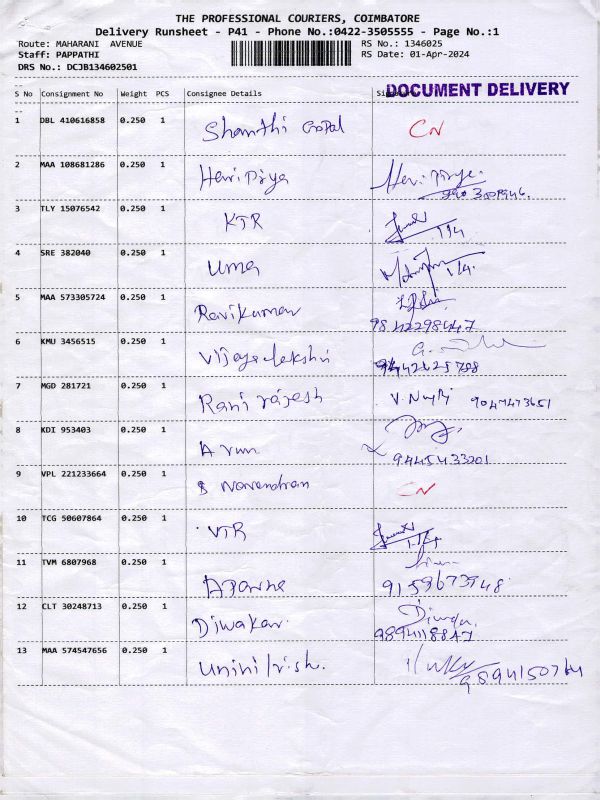 THE PROFESSIONAL COURIERS, COIMBATORE
Delivery Runsheet - P41 - Phone No.:0422-3505555 - Page No.:1
Route: MAHARANI AVENUE RS No.: 1346025
Staff: PAPPATHI RS Date: 01-Apr-2024
DRS No.: DCJB134602501
DOCUMENT DELIVERY
S No Consignment No Weight PCS Consignee Details
1 DBL 410616858 0.250 1 Shanthi Gopal CN
2 MAA 108681286 0.250 1 Haripriya
3 TLY 15076542 0.250 1 KTR 1/4
4 SRE 382040 0.250 1 Uma 1/4.
5 MAA 573305724 0.250 1 Ravikumar
9842298447
6 KMU 3456515 0.250 1 Vijayalekshi
7 MGD 281721 0.250 1 Rani rajesh 9047473651
8 KDI 953403 0.250 1 Arun
9445433201
9 VPL 221233664 0.250 1 S Narendran CN
10 TCG 50607864 0.250 1 VTR
11 TVM 6807968 0.250 1 Aparna
9159673548
12 CLT 30248713 0.250 1 Diwakar
9894118847
13 MAA 574547656 0.250 1